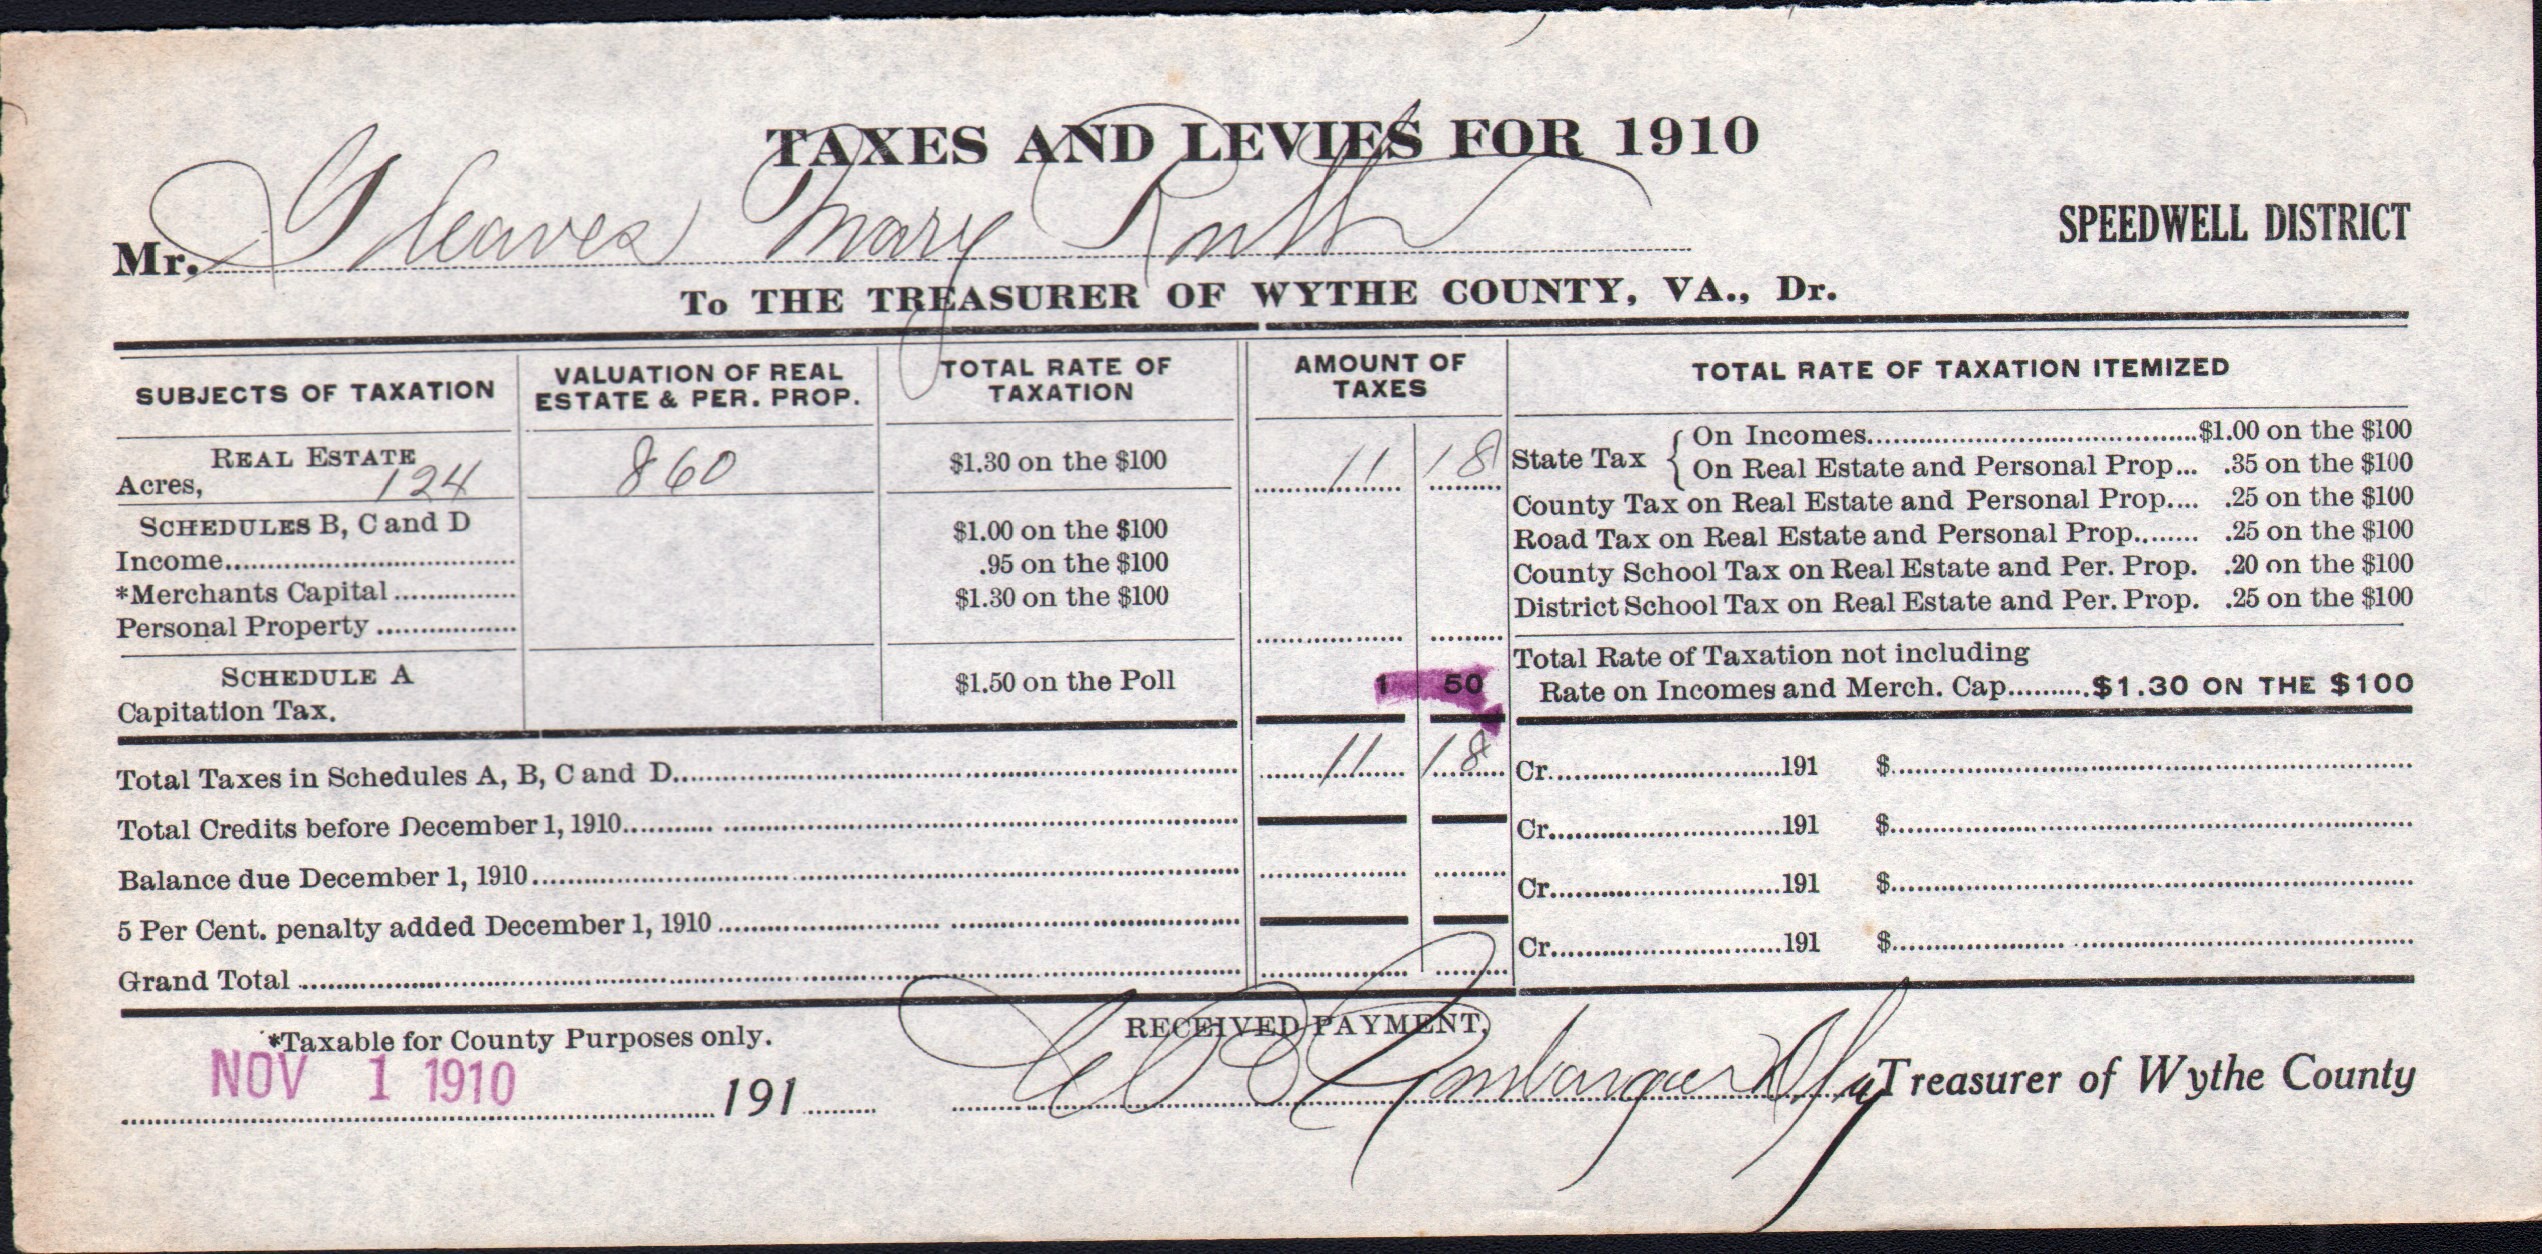 TAXES AND LEVIES FOR 1910
Mr. Gleaves Mary Ruth
SPEEDWELL DISTRICT
To THE TREASURER OF WYTHE COUNTY, VA., Dr.
SUBJECTS OF TAXATION
VALUATION OF REAL
ESTATE & PER. PROP.
TOTAL RATE OF
TAXATION
AMOUNT OF
TAXES
TOTAL RATE OF TAXATION ITEMIZED
REAL ESTATE
Acres, 124
860
$1.30 on the $100
11 18
SCHEDULES B, C and D
Income
$1.00 on the $100
*Merchants Capital
.95 on the $100
Personal Property
$1.30 on the $100
SCHEDULE A
Capitation Tax.
$1.50 on the Poll
1 50
State Tax
On Incomes $1.00 on the $100
On Real Estate and Personal Prop... .35 on the $100
County Tax on Real Estate and Personal Prop.... .25 on the $100
Road Tax on Real Estate and Personal Prop........ .25 on the $100
County School Tax on Real Estate and Per. Prop. .20 on the $100
District School Tax on Real Estate and Per. Prop. .25 on the $100
Total Rate of Taxation not including
Rate on Incomes and Merch. Cap..........$1.30 ON THE $100
Total Taxes in Schedules A, B, C and D 11 18
Total Credits before December 1, 1910
Balance due December 1, 1910
5 Per Cent. penalty added December 1, 1910
Grand Total
Cr. 191 $
Cr. 191 $
Cr. 191 $
Cr. 191 $
*Taxable for County Purposes only.
RECEIVED PAYMENT,
NOV 1 1910
191
Umbarger
Treasurer of Wythe County